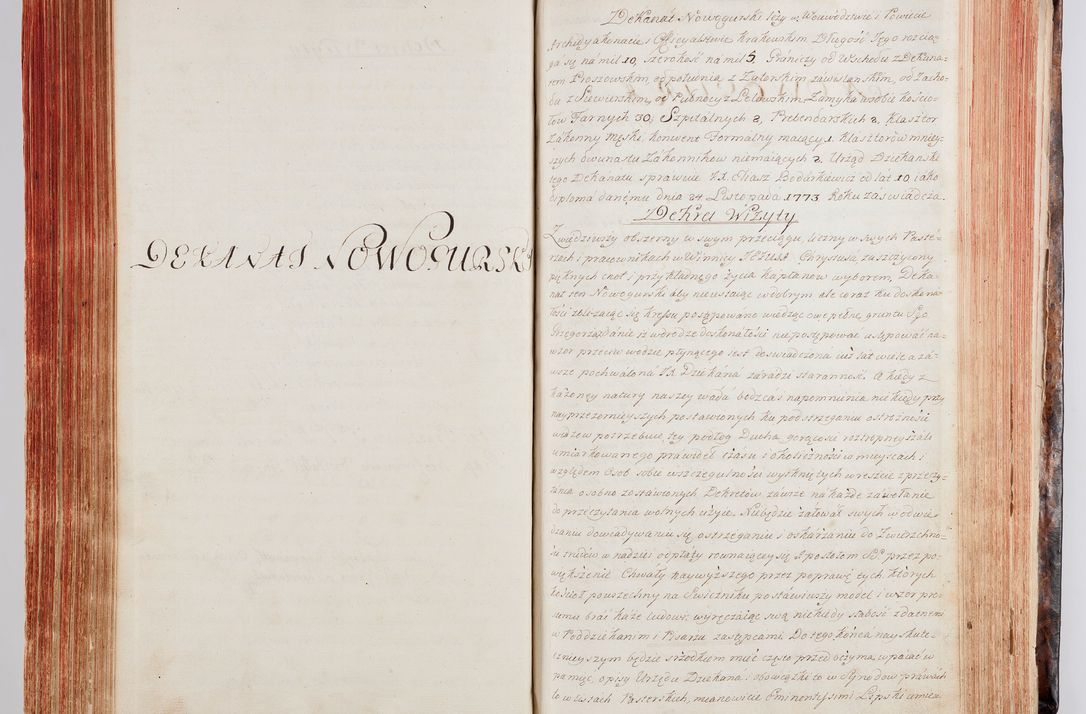 DEKANAT NOWOGURSKI
Dekanat Nowogurski leży w Woiewodztwie i Powiecie
Archidyakonacie i Officyalstwie Krakowskim Długość Jego rozcią-
ga się na mil 10. szerokość na mil 5. Graniczy od Wschodu z Dekana-
tem Proszowskim, od południa z Zatorskim zawislanskim, od Zacho-
du z Siewierskim, od Pułnocy z Lelowskim. Zamyka w sobie Kościo-
łow Farnych 30, Szpitalnych 2, Prebendarskich 2. Klasztor
Zakonny Męski konwent Formalny maiący 1. Klasztorow mniey-
szych dwunastu Zakonnikow niemaiących 2. Urząd Dziekański
tego Dekanatu sprawuie X. Bodurkiewicz od lat 10 iako
diploma danemu dnia 24 Listopada 1773 Roku zaświadcza.
Dekret Wizyty
Zwiedziwszy obszerny w swym przeciągu, liczny w swych Paste-
rzach i pracownikach w Winnicy JEZUSA Chrystusa zaszczycony
pięknych cnot i przykładnego życia kapłanow wyborem, Deka-
nat ten Nowogurski aby nieustaiąc w dobrym ale coraz ku doskona-
łości zbliżaiąc się kresu postępowano wiedząc owe pełne gruntu Sgo
Grzegorza zdanie iż w drodze doskonałości nie postępować ustępować na-
wzor przeciw wodzie płynącego iest doświadczona iuż lat wiele a za-
wsze pochwalona JX Dziekana zaradzi staranność. A kiedy z
każoney natury naszey wada będzca napomnienia niekiedy przy
nayprzezornieyszych postawionych ku podstrzeganiu ostrożności
wiążew potrzebuie, tey podług Ducha gorącości roztropney szali
umiarkowanego prawideł czasu i okoliczności w mieyscach i
względem osob sobie w szczegulności wytkniętych wreszcie z przeczy-
tania osobno zostawionych Dekretow zawsze na każde zawołanie
do przeczytania wolnych użyie. Niebędzie żałował swych w odwie-
dzaniu dowiadywaniu się ostrzeganiu i oskarżaniu do Zwierzchno-
ści trudow w nadziei odpłaty rownaiącey się Apostołom SS. przez po-
większenie Chwały naywyższego przez poprawę tych, których
kościoł powszechny na Świeczniku postawiwszy model i wzor pra-
brać każe ludowi wyręczaiąc swą niekiedy słabość zdatnemi
w Poddziekanim i Pisarzu zastępcami. Do tego końca nayskute-
cznieyszym będzie srzodkiem mieć często przed oczyma, wpaiać w
pamięć, opisy Urzędu Dziekana i obowiązki co w Synodow prawach
to w listach Pasterskich, mianowicie Eminentissimi Lipski umiesz-